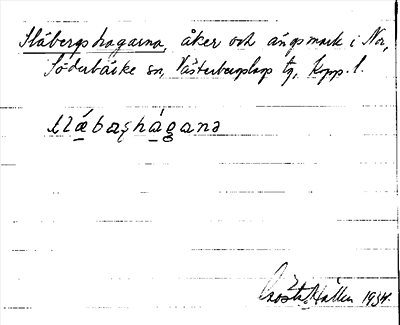 Släbergshagarna, åker och ängsmark i Nor,
Söderbärke sn, Västerbergslags tg, Kopp. l.
Gösta Hallén 1934.